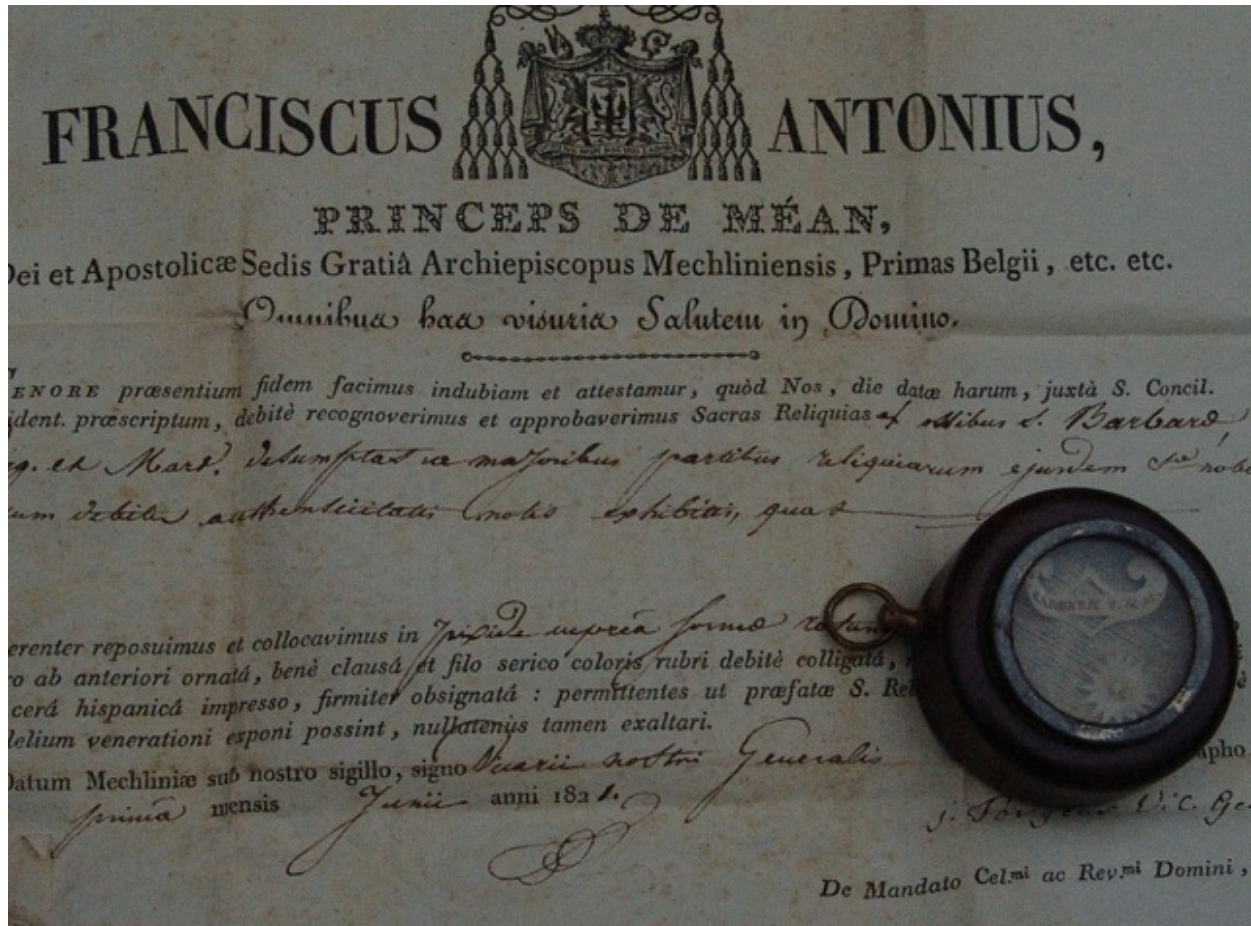 FRANCISCUS ANTONIUS,
PRINCEPS DE MÉAN,
Dei et Apostolicæ Sedis Gratiâ Archiepiscopus Mechliniensis, Primas Belgii, etc. etc.
Omnibus has visuris Salutem in Domino.
TENORE præsentium fidem facimus indubiam et attestamur, quòd Nos, die datæ harum, juxtà S. Concil.
ident. præscriptum, debitè recognoverimus et approbaverimus Sacras Reliquias ex ossibus S. Barbaræ,
ig. et Mart. desumptas ex majoribus partibus reliquiarum ejusdem Stæ nobis
cum debitis authenticitatis notis exhibitis, quas
erenter reposuimus et collocavimus in pixide formæ
ro ab anteriori ornatá, benè clausá et filo serico coloris rubri debitè colligatá,
cerá hispanicá impresso, firmiter obsignatá : permittentes ut præfatæ S. Rel
delium venerationi exponi possint, nullatenùs tamen exaltari.
Datum Mechliniæ sub nostro sigillo, signo Vicarii nostri Generalis apho
primâ mensis Junii anni 1821.
J. Vic. Ge
De Mandato Cel.mi ac Rev.mi Domini,
BARBARÆ V. M.